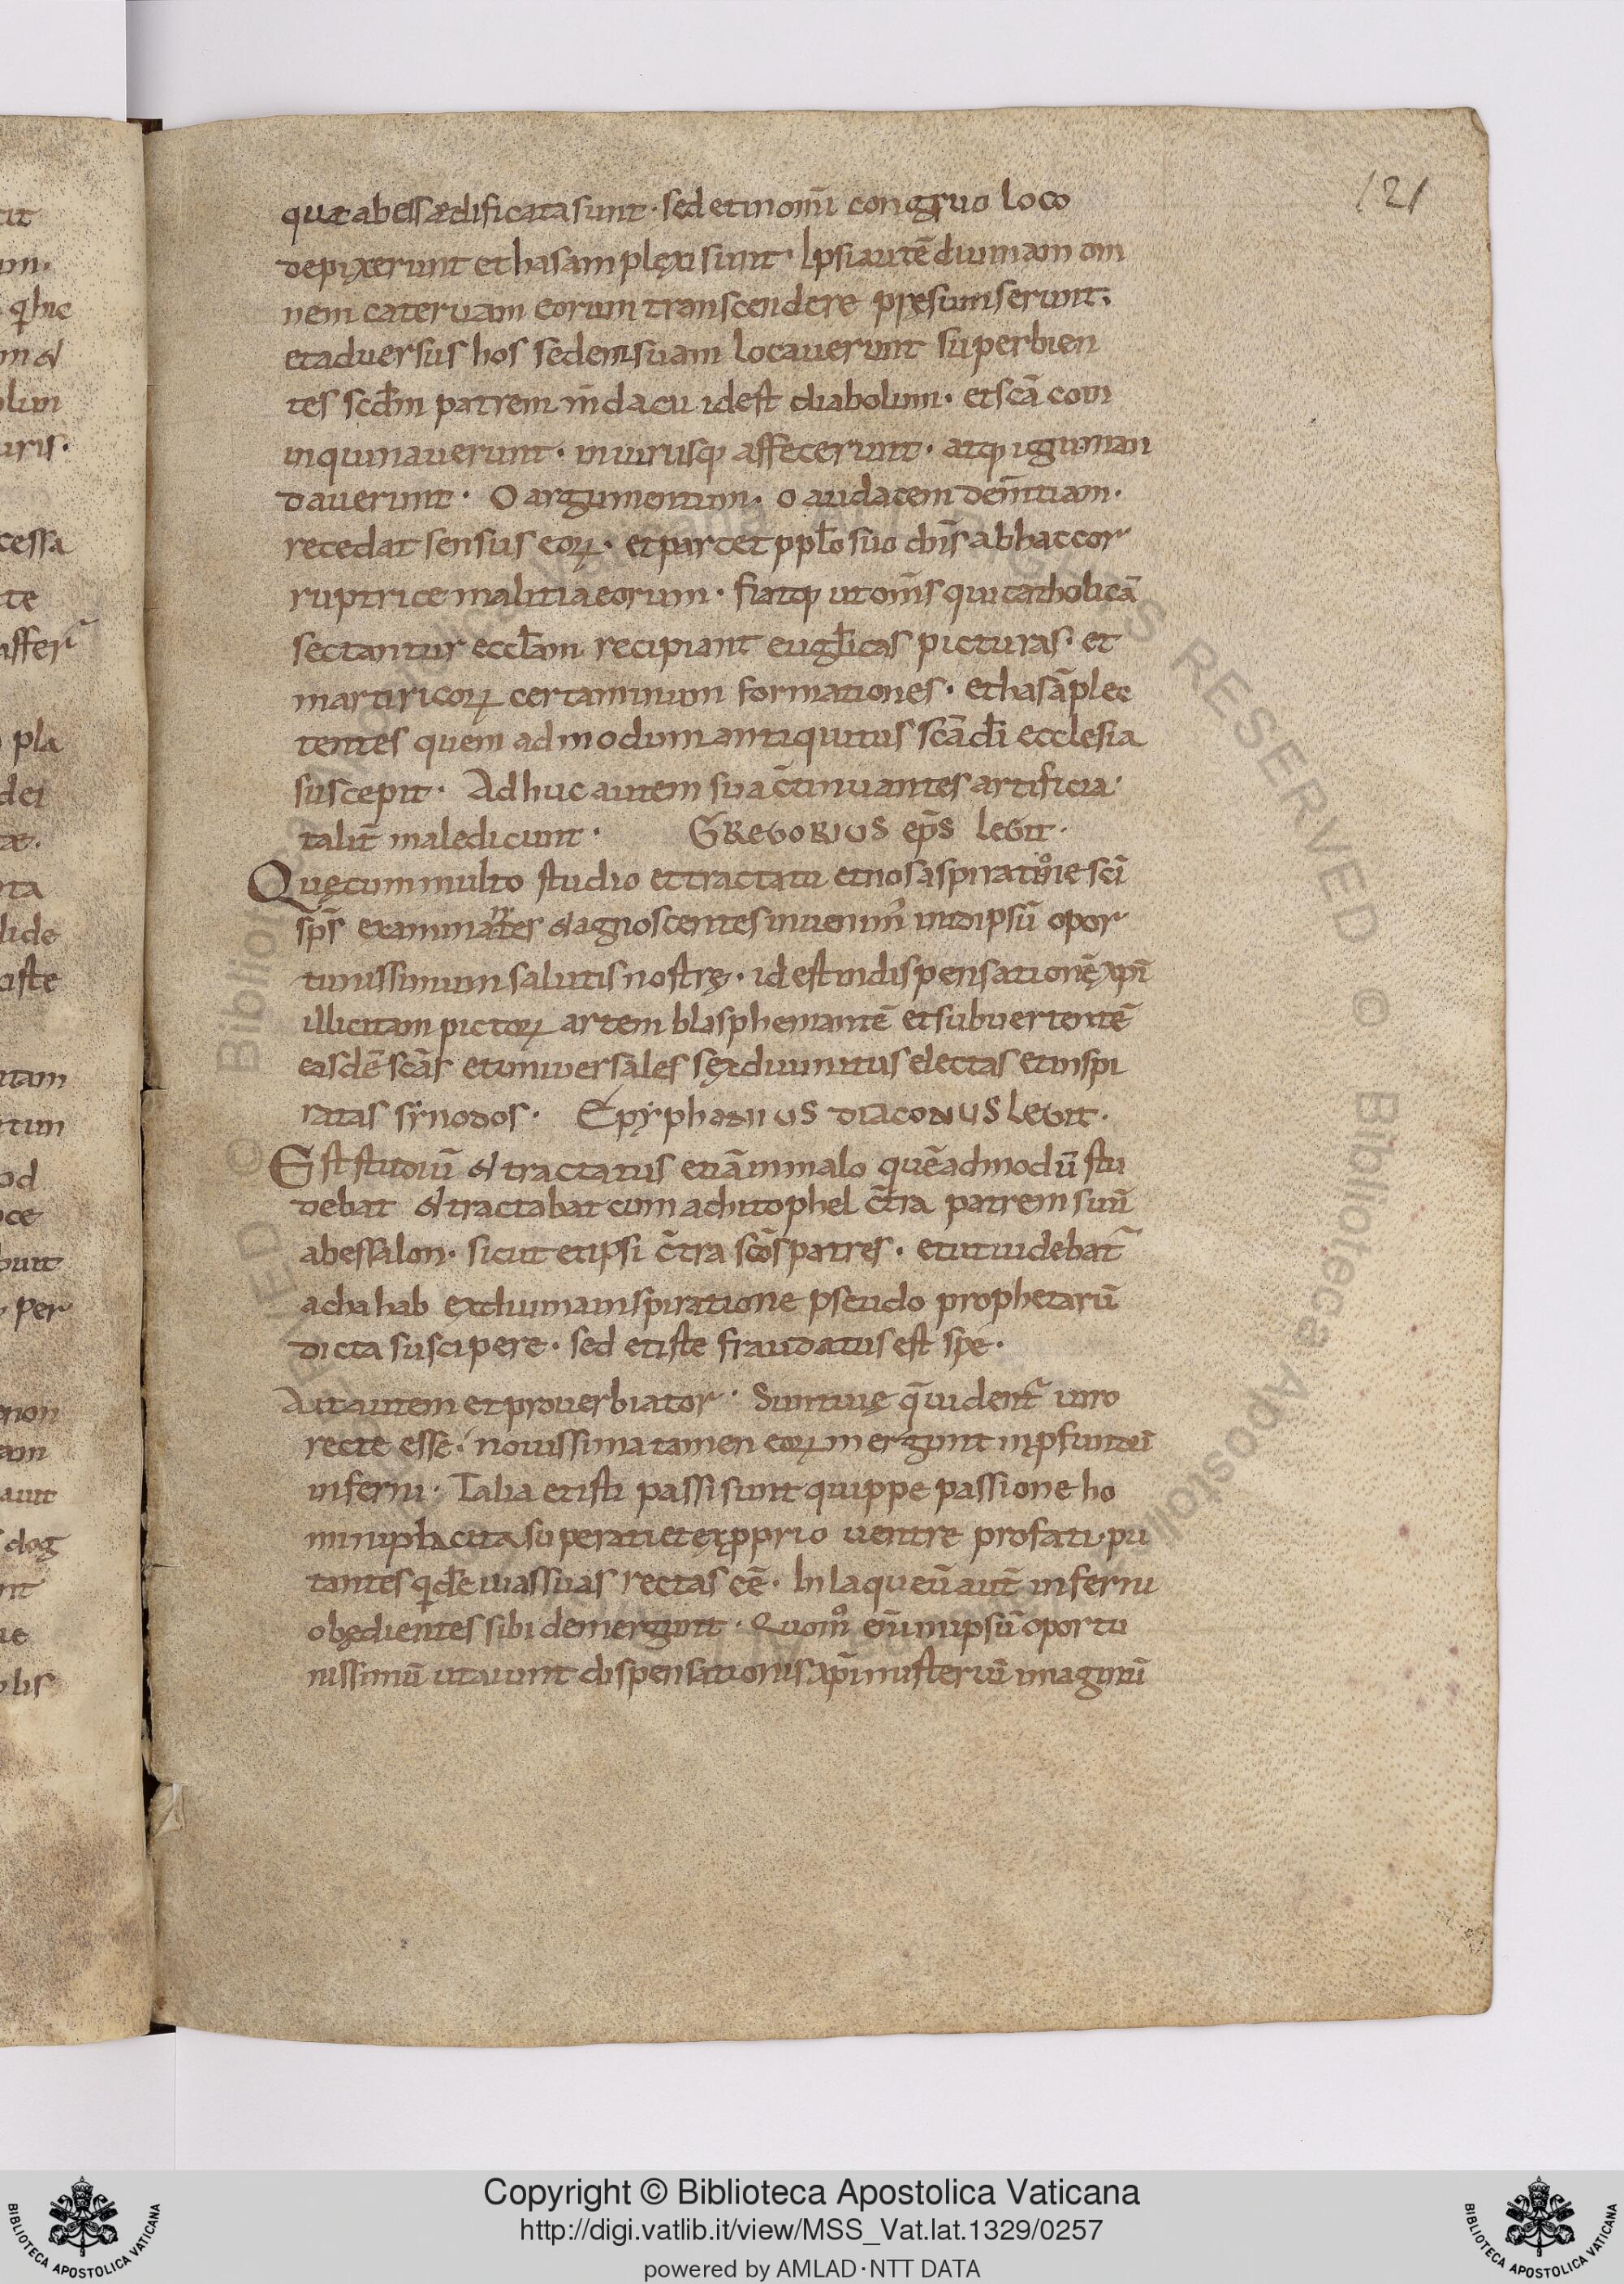 121
quæ ab ess ædificata sunt · sed et in om̄i congruo loco
depixerunt et has amplexi sunt · Ipsi autē diuinam om
nem cateruam eorum transcendere pręsumserunt;
et aduersus hos sedem suam locauerunt superbien
tes scd̄m patrem m̄dacii idest diabolum · et sc̄a com
inquinauerunt · inuirusq; affecerunt · atq; igni man
dauerunt · O argumentum · o audacem dem̄tiam ·
recedat sensus eoꝝ · et parcet ppl̄o suo dn̄s ab hac cor
ruptrice malitia eorum · fiatq; ut om̄s qui catholicā
sectantur eccl̄am recipiant eugl̄icas picturas · et
martiricoꝝ certaminum formationes · et has āplec
tentes quem admodum antiquitus sc̄a dī ecclesia
suscepit · Adhuc autem sua c̄tinuantes artificia ·
talit̄ maledicunt · GREGORIUS ep̄s legit ·
Quę cum multo studio et tractatu et nos aspiratiōne sc̄i
sp̄s examinantes & agnoscentes inuenim᾽ in id ipsū opor
tunissimum salutis nostrę · id est in dispensationē xp̄i
illicitam pictoꝝ artem blasphemantē et subuertentē
easdē sc̄as et uniuersales sex diuinitus electas et inspi
ratas sẏnodos · Epẏphanius diaconus legit ·
Est studiū & tractatus etiā in malo quēadmodū stu
debat & tractabat cum achitophel c̄tra patrem suū
abessalon · sicut et ipsi c̄tra sc̄os patres · et ut uidebat᷑
achahab ex diuina inspiratione pseudo prophetarū
dicta suscipere · sed et iste fraudatus est spe ·
Ait autem et prouerbiator · Sunt uię q̄ uident᷑ uiro
recte esse · nouissima tamen eoꝝ mergunt in pfundū
inferni · Talia et isti passi sunt quippe passione ho
minū placita superati et ex pprio uentre profati · pu
tantes qd̄e uias suas rectas eē · In laqueū aut̄ inferni
obędientes sibi demergunt · Quom° enī in ipsū oportu
nissimū ut aiunt dispensationis xp̄i misteriū imaginū
Copyright © Biblioteca Apostolica Vaticana
http://digi.vatlib.it/view/MSS_Vat.lat.1329/0257
powered by AMLAD·NTT DATA